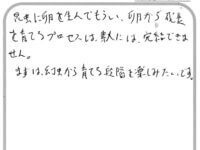 昆虫に卵を生んでもらい、卵から成長
を育てるプロセスは、素人には、完結できま
せん。
まずは、幼虫から育てる段階を楽しみたいです。